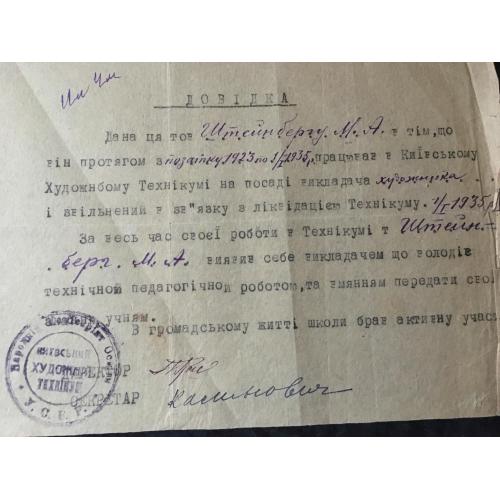 Ил Ум
ДОВІДКА
Дана ця тов Штейнбергу. М. А. в тім, що
він протягом з початку 1923 по 1/I 1935 р. працював в Київському
Художньому Технікумі на посаді викладача художника
і звільнений в зв"язку з ліквідацією Технікуму. 1/I 1935 р.
За весь час своєї роботи в Технікумі т Штейн-
берг. М. А. виявив себе викладачем що володів
технічной педагогічной роботою, та вмянням передати сво
учням.
В громадському житті школи брав активну учас
ДИРЕКТОР
СЕКРЕТАР Калинович
Народній Комісаріят Освіти
КИЇВСЬКИЙ
ХУДОЖН
ТЕХНІКУМ
У. С. Р. Р.